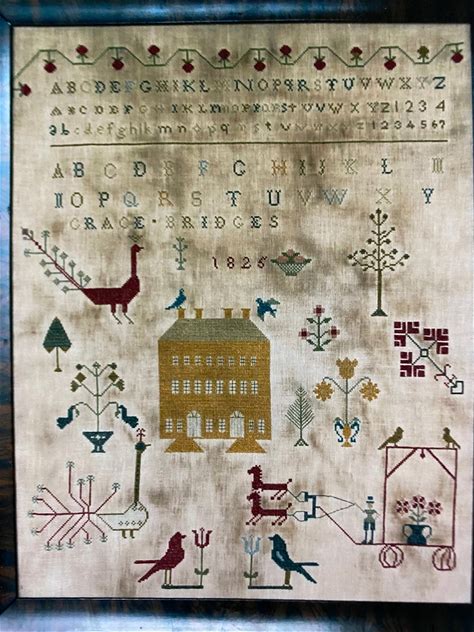 ABCDEFGHIKLMNOPQRSTUVWXYZ
ABCDEFGHIKLMNOPQRSTUVWXYZ1234
abcdefghikmnopqrstuvwxz1234567
ABCDEFGHIJKLM
NOPQRSTUVWXY
GRACE·BRIDGES
1826